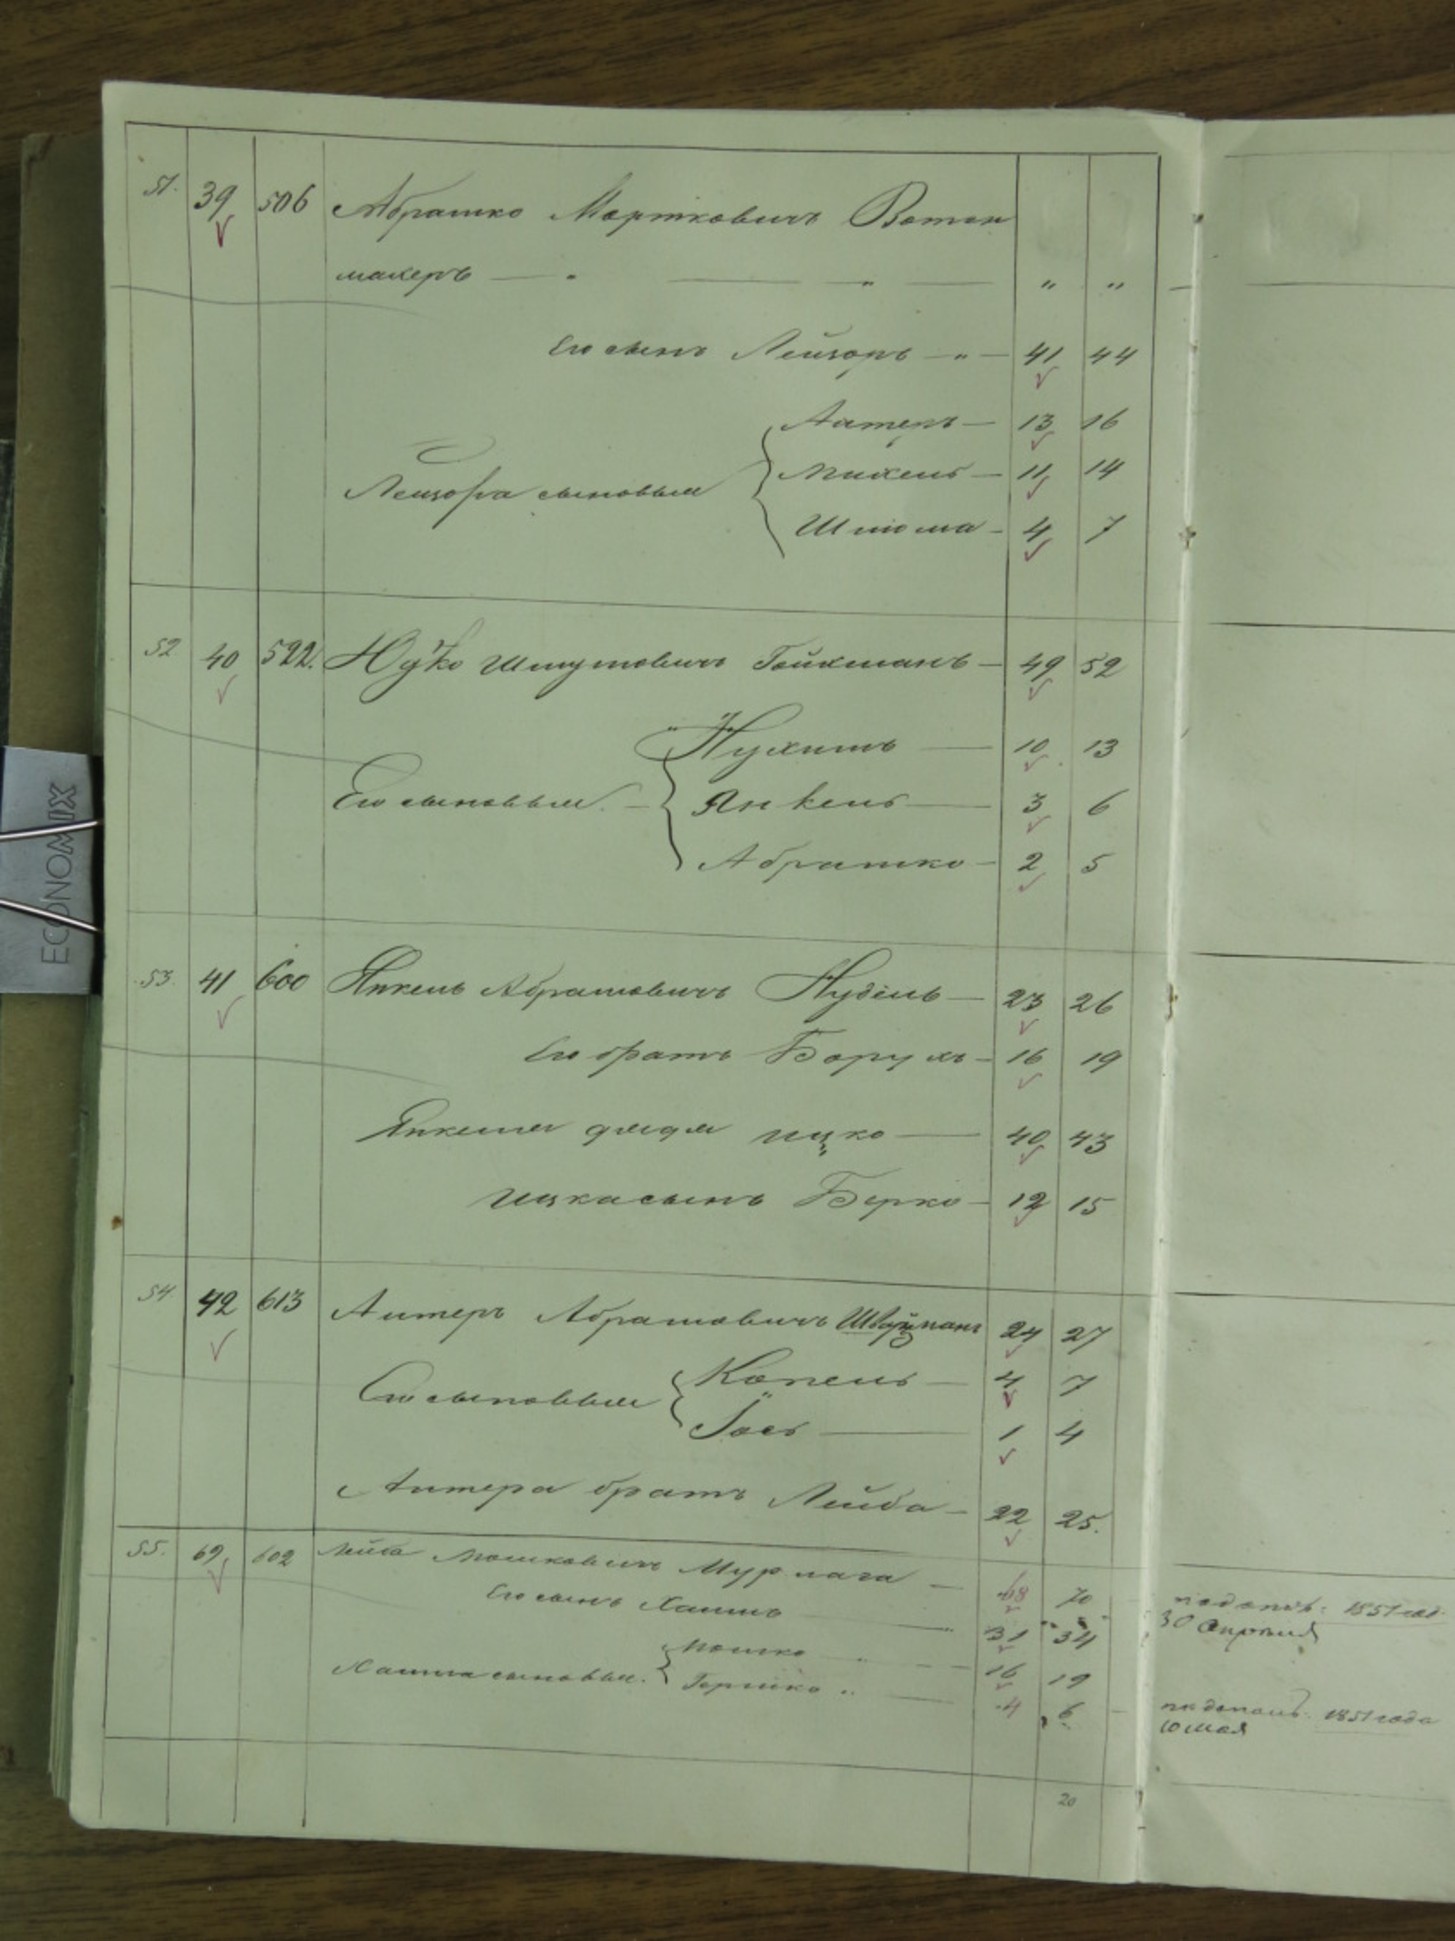 51. 39 506 Абрашко Мортковичъ Ватен
махеръ — " — " — " "
Его сынъ Лейзоръ — " — 41 44
Антеръ — 13 16
Лейзора сыновья Михель — 11 14
Шлиома — 4 7
52 40 522. Юдко Шмулевичъ Гойхманъ — 49 52
Нухимъ — 10 13
Его сыновья. — Янкель — 3 6
Абрашко — 2 5
53. 41 600 Янкель Абрамовичъ Нудель — 23 26
Его братъ Борухъ — 16 19
Янкеля дядя Ицко — 40 43
Ицка сынъ Берко — 12 15
54 42 613 Антеръ Абрамовичъ Шварцманъ 24 27
Его сыновья Копель — 4 7
Іось — 1 4
Антера братъ Лейба — 22 25.
55. 69. 602 Лейба Мошковичъ — 68 70 1851 год
Его сынъ Хаимъ — 31 34 30 Апреля
Мошко " — 16 19
Хаима сыновья. Гершко " — 4 6 — 1851 года
10 мая
20
ECONOMIX